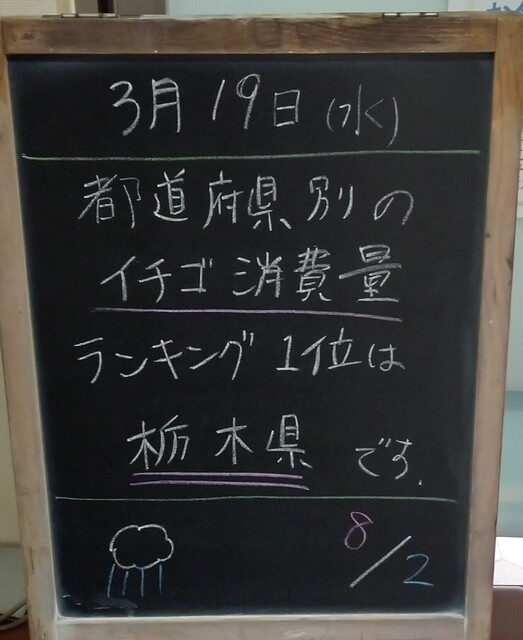 3月19日(水)
都道府県別の
イチゴ消費量
ランキング1位は
栃木県です.
8/2